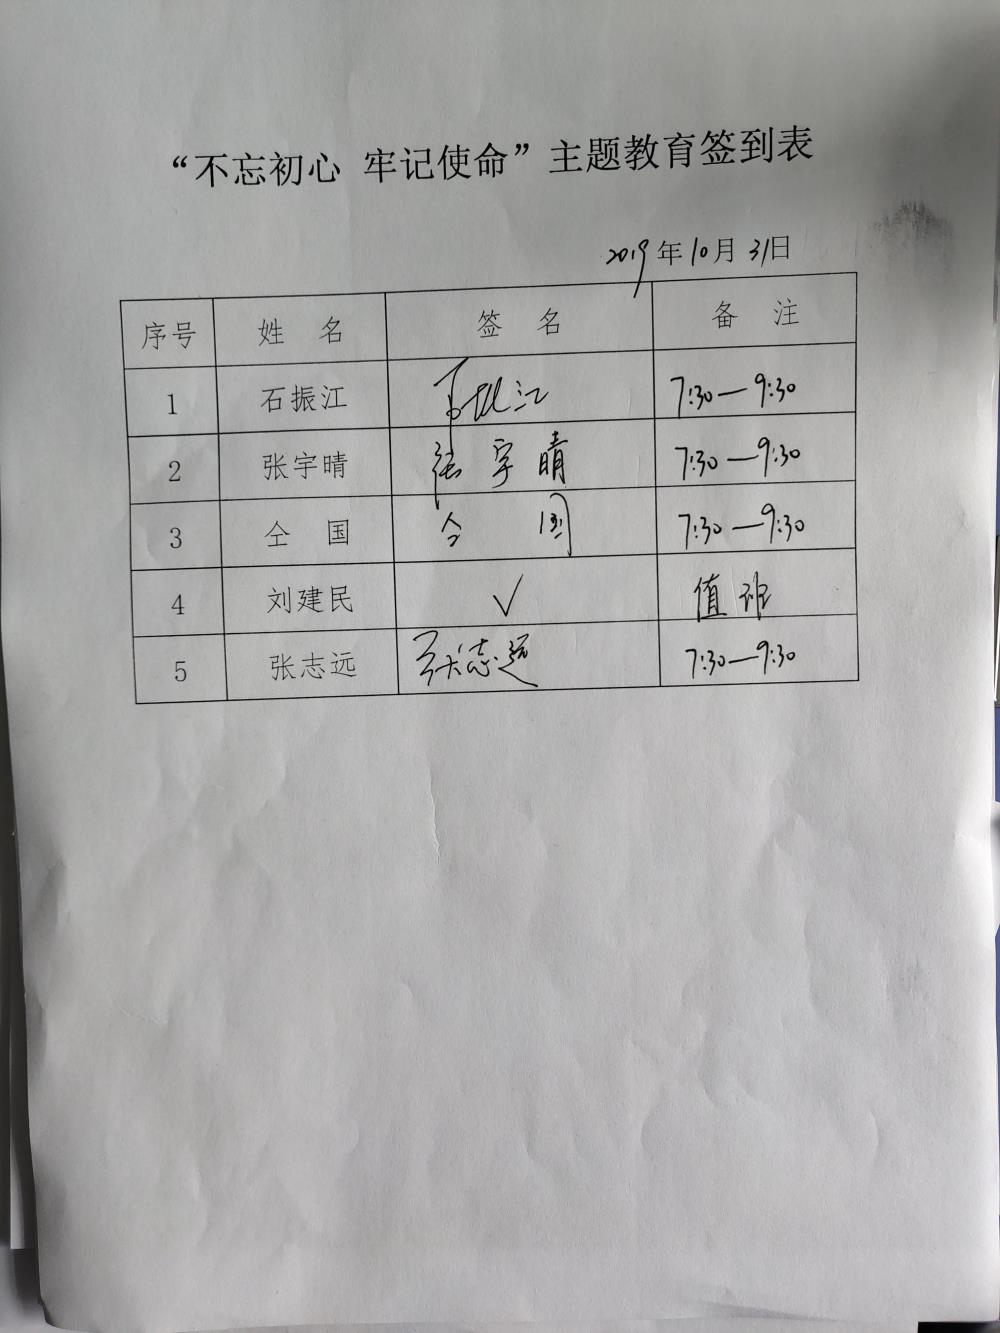 “不忘初心 牢记使命”主题教育签到表
2019年10月31日
序号 姓 名 签 名 备 注
1 石振江 石振江 7:30—9:30
2 张宇晴 张宇晴 7:30—9:30
3 仝 国 仝 国 7:30—9:30
4 刘建民 √ 值班
5 张志远 张志远 7:30—9:30